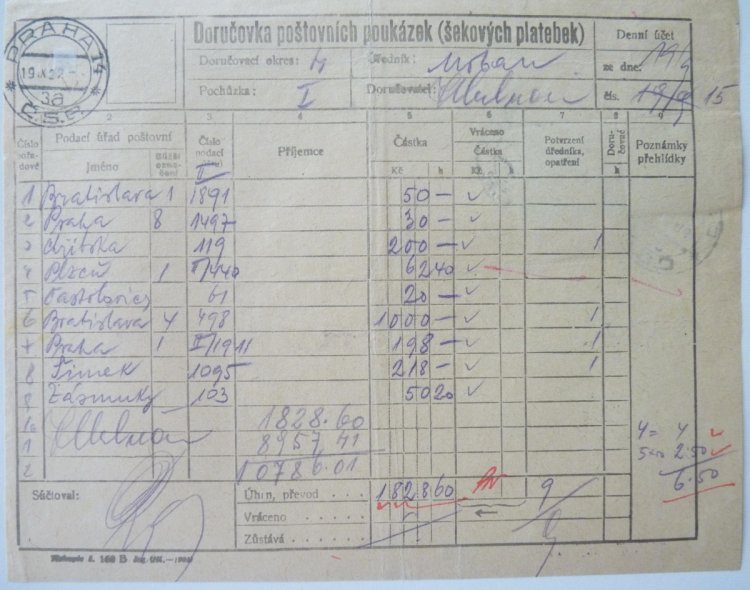 PRAHA 14
19.X.32
3a
Č.S.R.
Doručovka poštovních poukázek (šekových platebek)
Denní účet
Doručovací okres: 4 Úředník: ze dne: 19/9
Pochůzka: I Doručovatel: čís. 15
1 2 3 4 5 6 7 8 9
Číslo pořadové Podací úřad poštovní Číslo podací Příjemce Částka Vráceno Potvrzení úředníka, opatření Doručovné Poznámky přehlídky
Jméno Bližší označení II Kč h Částka Kč h h
1 Bratislava 1 1891 50 —
2 Praha 8 1497 30 —
3 119 200 — 1
4 Plzeň 1 II/440 62 40
5 61 20 —
6 Bratislava 4 498 1000 — 1
7 Praha 1 II/1911 198 — 1
8 Šimek 1095 218 — 1
9 Zásmuky 103 50 20
10 1828.60
1 8957.41
2 10786.01
4 = 4
2.50
6.50
Súčtoval: Úhrn, převod . . . . 1828 60 9
Vráceno . . . . . . —
Zůstává . . . . . .